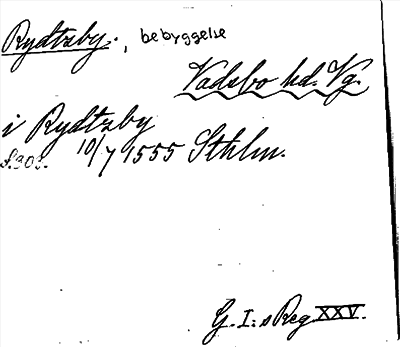 Rydtzby. , bebyggelse
Vadsbo hd. Vg.
i Rydtzby
S. 303. 10/7 1555 Sthlm.
G. I:s Reg XXV.